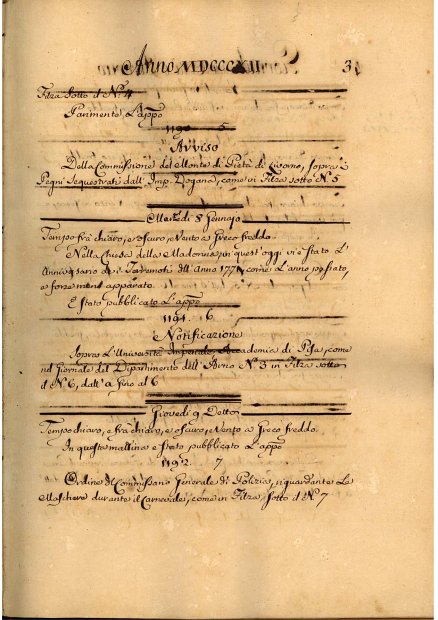 Anno MDCCCXII 3
Filza sotto il N.º 4
Parimente L'appo
1190 5
Avviso
Della Commissione del Monte di Pietà di Livorno, sopra i
Pegni sequestrati dall'Imp. Dogana, come in Filza sotto N. 5
8 Gennajo
Tempo frà chiaro, e oscuro, e Vento a Greco freddo.
Nella Chiesa della Madonna in quest'oggi vi è stato L'
Anniversario de i Tarremoti dell'Anno 177 come L'anno passato,
apparato
E stato pubblicato L'appo
1191. 6
Notificazione
Sopra L'Università Imperiale, Accademia di Pisa, come
nel Giornale del Dipartimento dell'Arno N.º 3 in Filza sotto
d N.º 6, dall' a fino al 6
Giovedi 9 Detto
Tempo chiaro, e frà chiaro, e oscuro, e Vento a Greco freddo.
In questa mattina è stato pubblicato L'appo
1192. 7
Ordine di Commissario Generale di Polizia, riguardante Le
Maschere durante il Carnevale, come in Filza sotto d N.º 7